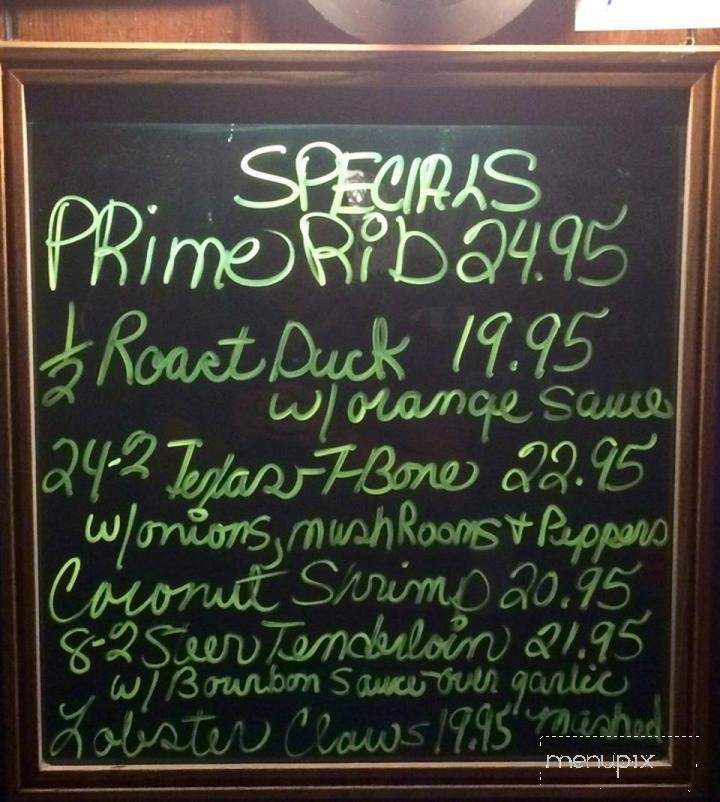 SPECIALS
PRime Rib 24.95
1/2 Roast Duck 19.95
w/ orange sauce
24-2 Texas-T-Bone 22.95
w/onions, mushRooms + Peppers
Coconut Shrimp 20.95
8-2 Steer Tenderloin 21.95
w/ Bourbon Sauce over garlic
mashed
Lobster Claws 19.95
menupix